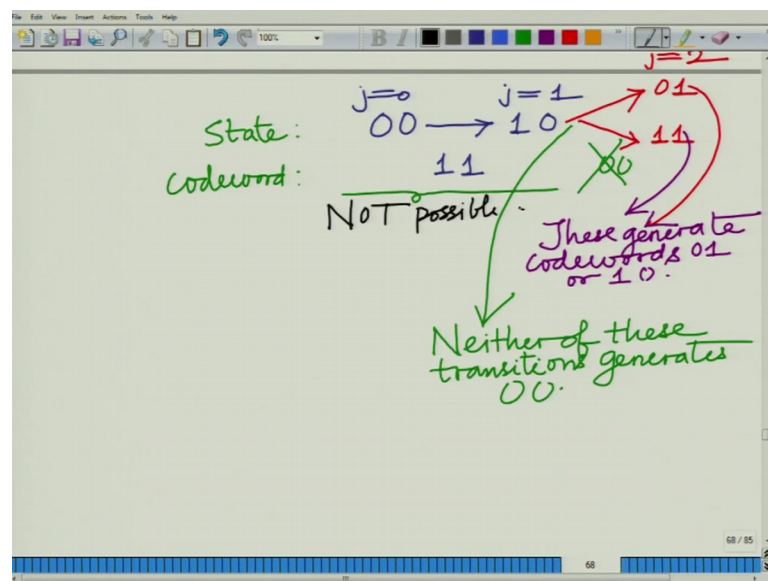 File Edit View Insert Actions Tools Help
100%
B I
j=2
j=0 j=1 01
State: 00 → 10 11
Codeword: 11 00
NOT possible.
These generate
codewords 01
or 10.
Neither of these
transitions generates
00.
68 / 85
68